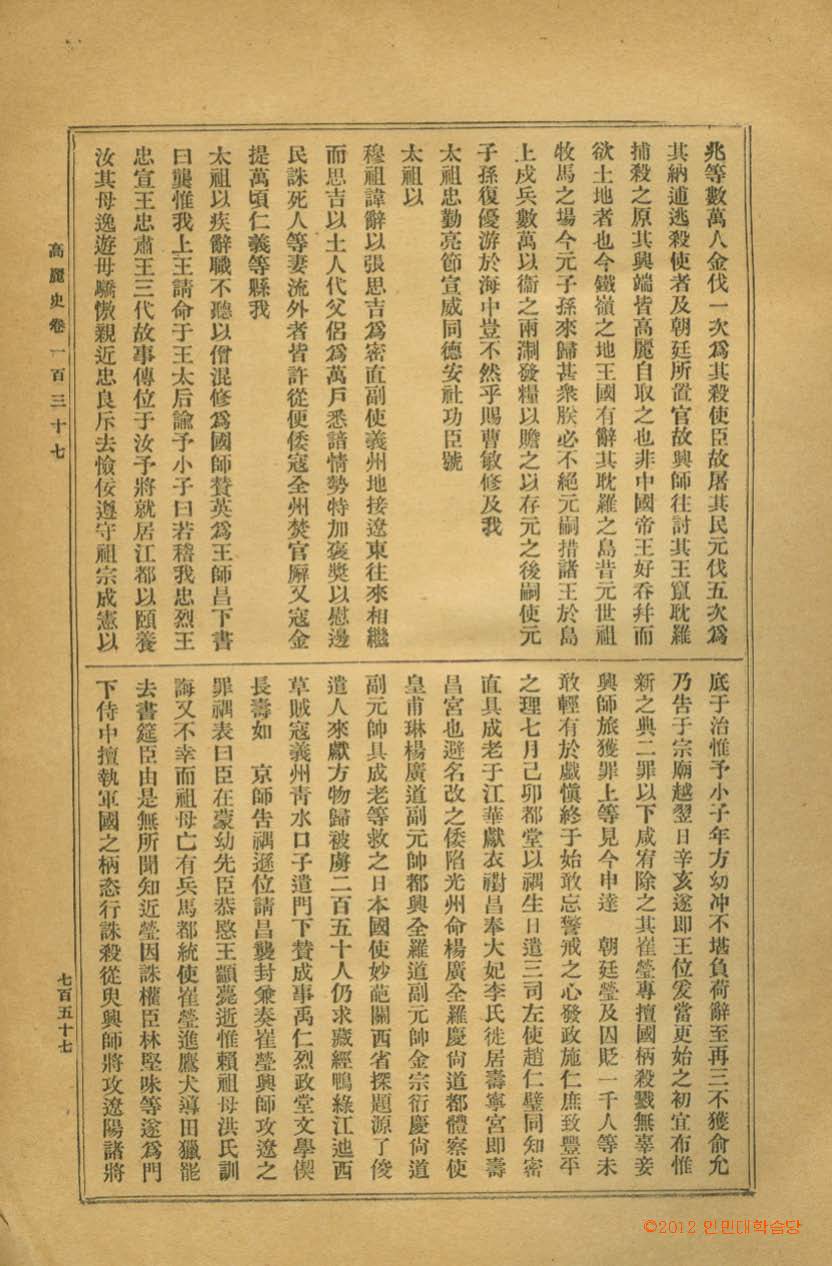 兆等數萬人金伐一次爲其殺使臣故屠其民元伐五次爲
其納逋逃殺使者及朝廷所置官故興師往討其王竄耽羅
捕殺之原其興端皆高麗自取之也非中國帝王好呑幷而
欲土地者也今鐵嶺之地王國有辭其耽羅之島昔元世祖
牧馬之場今元子孫來歸甚衆朕必不絶元嗣措諸王於島
上戍兵數萬以衞之兩淛發糧以贍之以存元之後嗣使元
子孫復優游於海中豈不然乎賜曹敏修及我
太祖忠勤亮節宣威同德安社功臣號
太祖以
穆祖諱辭以張思吉爲密直副使義州地接遼東往來相繼
而思吉以土人代父侶爲萬戶悉諳情勢特加褒奬以慰邊
民誅死人等妻流外者皆許從便倭寇全州焚官廨又寇金
提萬頃仁義等縣我
太祖以疾辭職不聽以僧混修爲國師賛英爲王師昌下書
曰龔惟我上王請命于王太后諭予小子曰若稽我忠烈王
忠宣王忠肅王三代故事傳位于汝予將就居江都以頤養
汝其母逸遊毋驕慠親近忠良斥去憸佞遵守祖宗成憲以
底于治惟予小子年方幼冲不堪負荷辭至再三不獲兪允
乃告于宗廟越翌日辛亥遂即王位爰當更始之初宜布惟
新之典二罪以下咸宥除之其崔瑩專擅國柄殺戮無辜妾
興師旅獲罪上等見今申達　朝廷瑩及囚貶一千人等未
敢輕有於戱愼終于始敢忘警戒之心發政施仁庶致豐平
之理七月己卯都堂以禑生日遣三司左使趙仁璧同知密
直具成老于江華獻衣襨昌奉大妃李氏徙居壽寧宮即壽
昌宮也避名改之倭陷光州命楊廣全羅慶尙道都體察使
皇甫琳楊廣道副元帥都興全羅道副元帥金宗衍慶尙道
副元帥具成老等救之日本國使妙葩關西省探題源了俊
遣人來獻方物歸被虜二百五十人仍求藏經鴨綠江迆西
草賊寇義州靑水口子遣門下賛成事禹仁烈政堂文學偰
長壽如　京師吿禑遜位請昌襲封兼奏崔瑩興師攻遼之
罪禑表曰臣在蒙幼先臣恭愍王顓薨逝惟賴祖母洪氏訓
誨又不幸而祖母亡有兵馬都統使崔瑩進鷹犬導田獵罷
去書筵臣由是無所聞知近瑩因誅權臣林堅味等遂爲門
下侍中擅執軍國之柄恣行誅殺從臾興師將攻遼陽諸將
高麗史卷一百三十七
七百五十七
©2012 인민대학습당